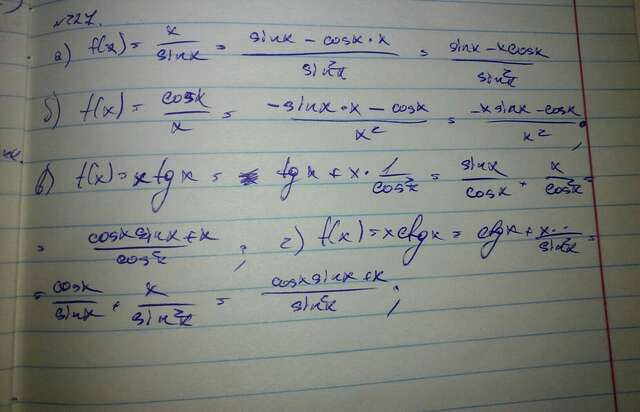 №227.
а) f(x) = x/sinx = (sinx - cosx · x)/sin²x = (sinx - xcosx)/sin²x
б) f(x) = cosx/x = (-sinx · x - cosx)/x² = (-xsinx - cosx)/x² ;
в) f(x) = x tgx = tgx + x · 1/cos²x = sinx/cosx + x/cos²x =
= (cosx sinx + x)/cos²x ; г) f(x) = x ctgx = ctgx + x··/sin²x =
= cosx/sinx + x/sin²x = (cosx sinx + x)/sin²x ;